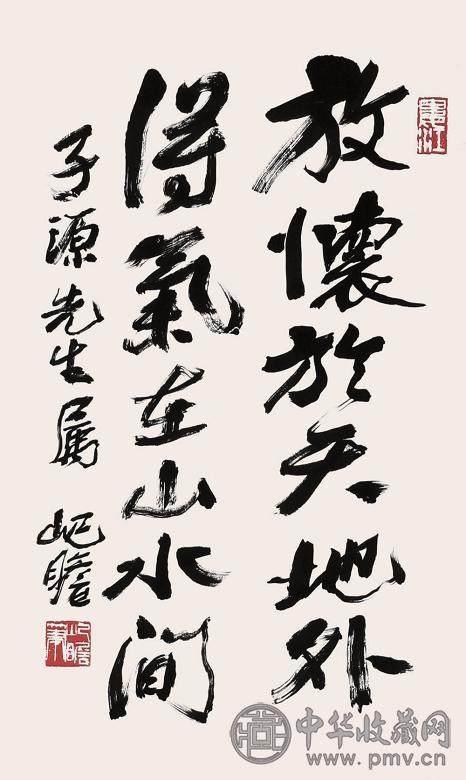 放懷於天地外
得氣在山水間
子源先生属 屺瞻
屺瞻
中华收藏网
www.pmv.cn